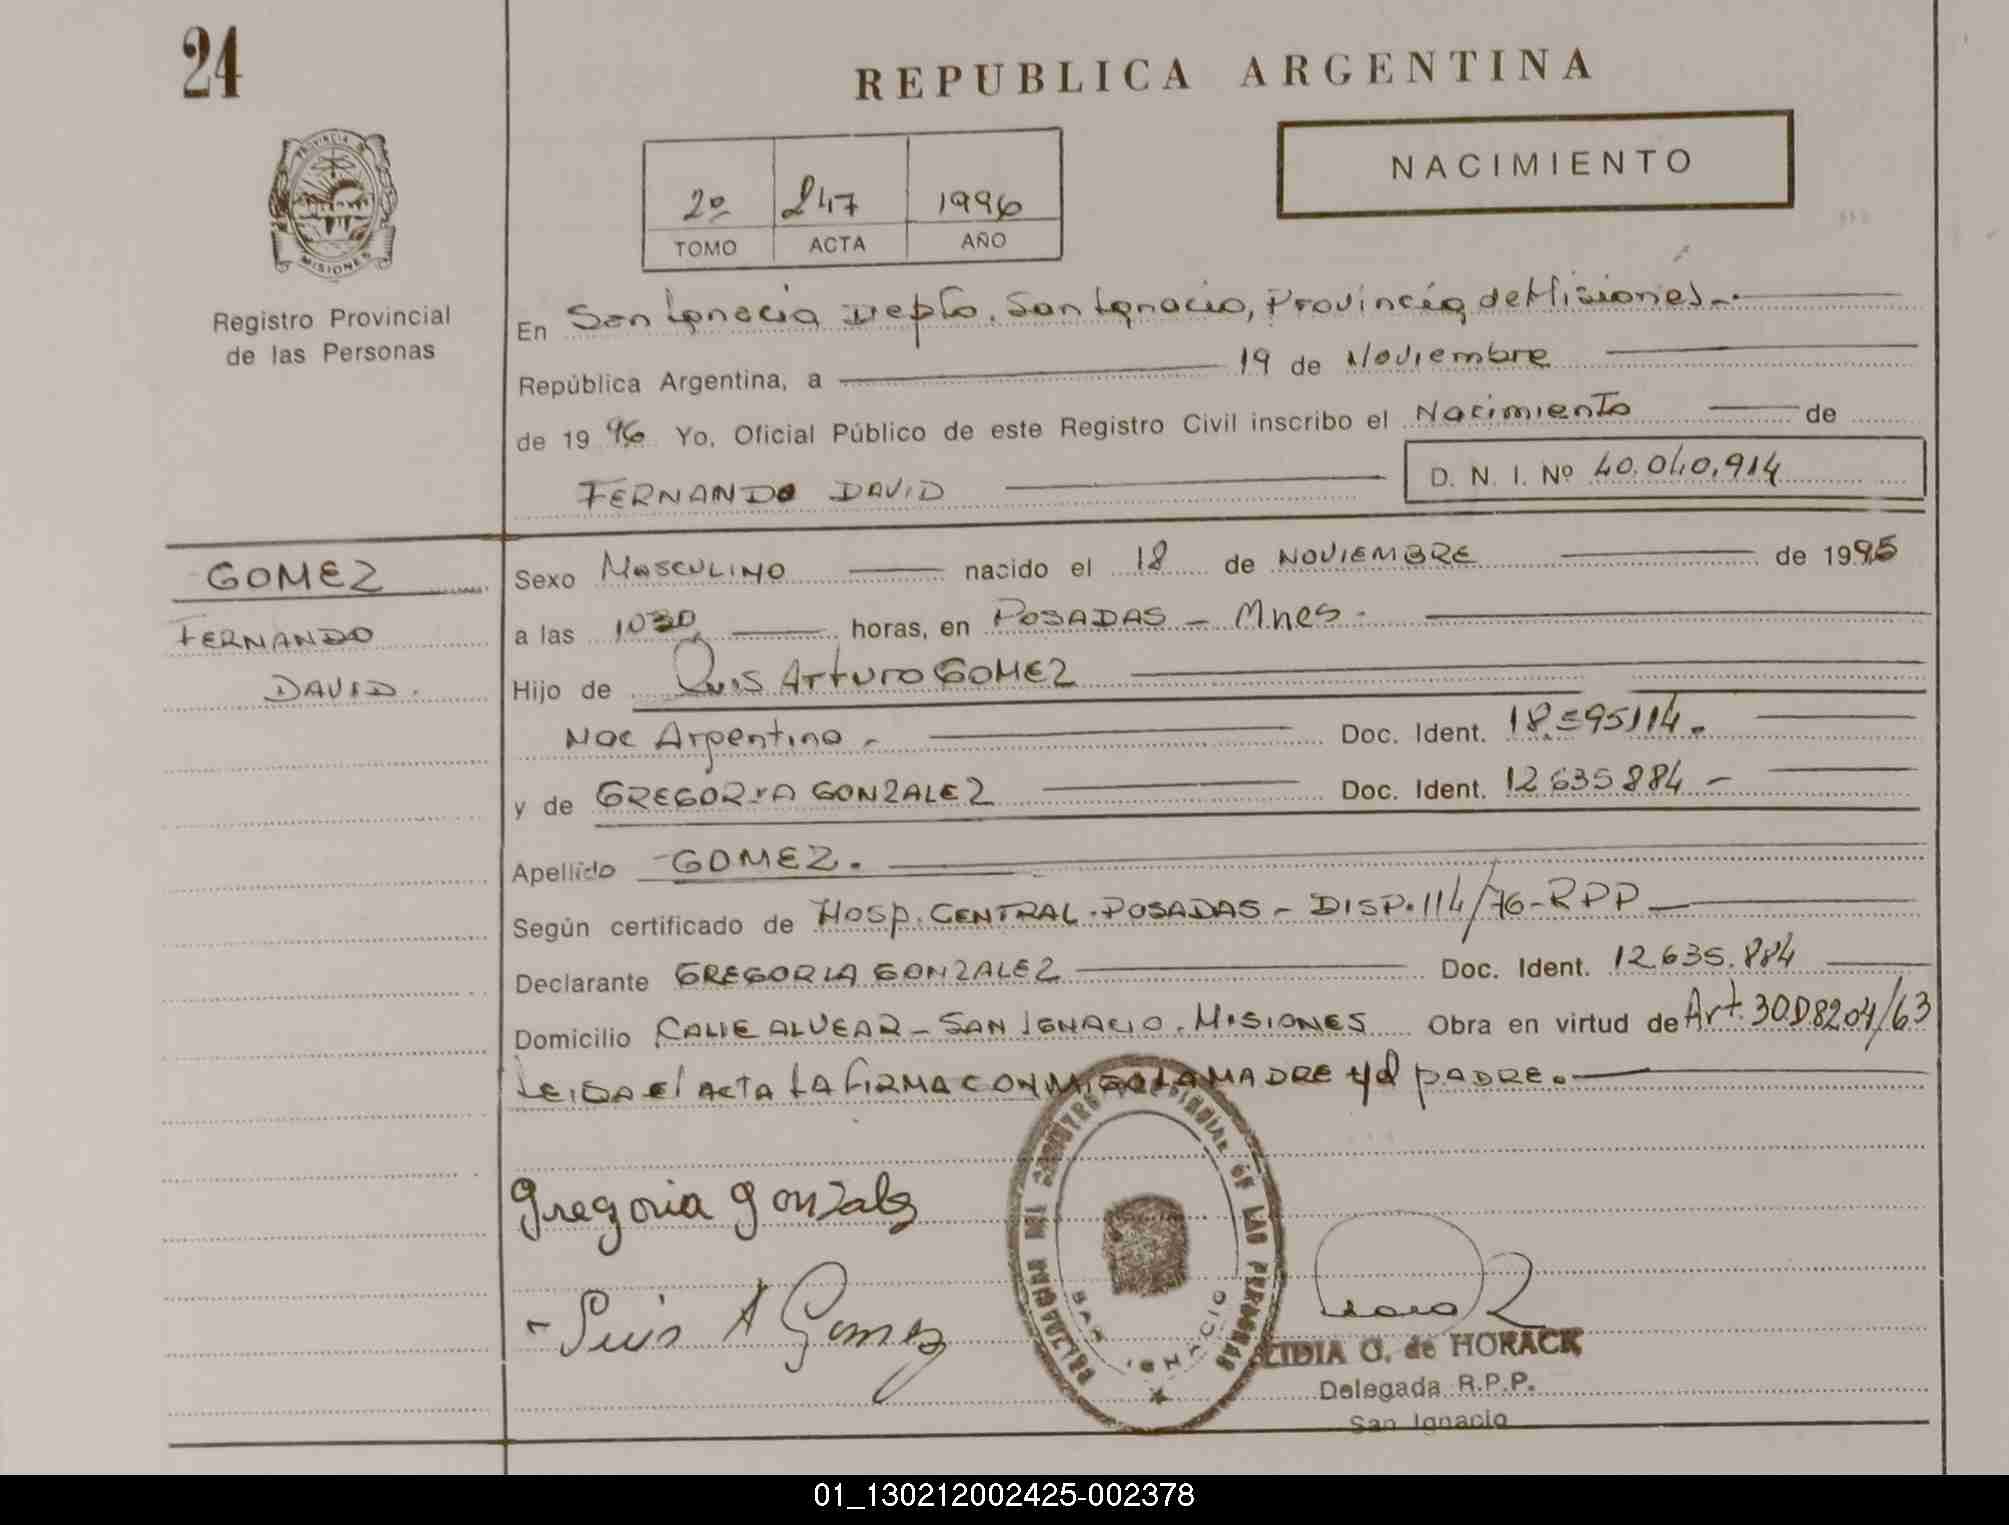 24
REPUBLICA ARGENTINA
NACIMIENTO
PROVINCIA DE
MISIONES
2º 247 1996
TOMO ACTA AÑO
Registro Provincial
de las Personas
En San Ignacio Depto. San Ignacio, Provincia de Misiones.-
República Argentina, a 19 de Noviembre
de 1996 Yo, Oficial Público de este Registro Civil inscribo el Nacimiento de
FERNANDO DAVID D. N. I. Nº 40.040.914
GOMEZ
FERNANDO
DAVID.
Sexo MASCULINO nacido el 18 de NOVIEMBRE de 1995
a las 1030 horas, en POSADAS - Mnes.
Hijo de Luis Arturo GOMEZ
Nac Argentina - Doc. Ident. 18.595114.
y de GREGORIA GONZALEZ Doc. Ident. 12.635.884 -
Apellido GOMEZ.
Según certificado de HOSP. CENTRAL. POSADAS - DISP. 114/76-RPP
Declarante GREGORIA GONZALEZ Doc. Ident. 12.635.884
Domicilio CALLE ALVEAR - SAN IGNACIO. MISIONES Obra en virtud de Art. 30 D.8204/63
LEIDA El ACTA LA FIRMA CONMIGO LA MADRE y el PADRE.
Gregoria Gonzalez
- Luis A Gomez
PROVINCIAL DE LAS PERSONAS
SAN IGNACIO
LIDIA G. de HORACK
Delegada R.P.P.
San Ignacio
01_130212002425-002378